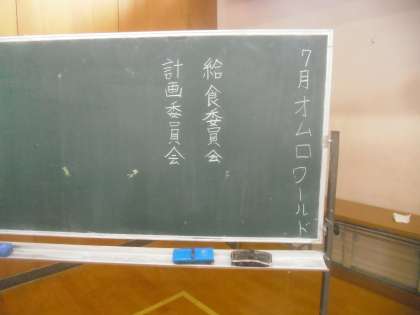 7月オムロワールド
給食委員会
計画委員会